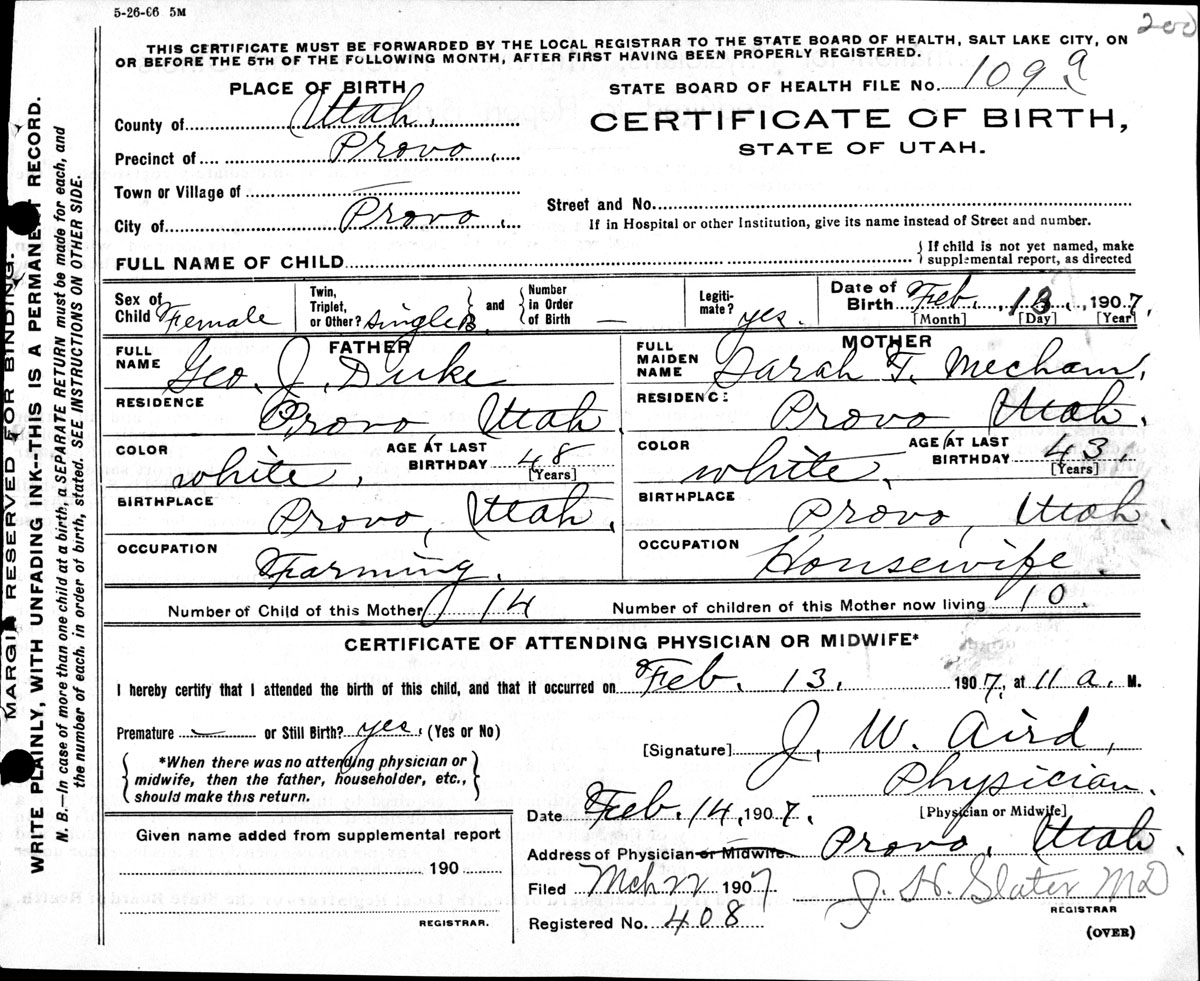 5-26-06 5M
200
THIS CERTIFICATE MUST BE FORWARDED BY THE LOCAL REGISTRAR TO THE STATE BOARD OF HEALTH, SALT LAKE CITY, ON
OR BEFORE THE 5TH OF THE FOLLOWING MONTH, AFTER FIRST HAVING BEEN PROPERLY REGISTERED.
PLACE OF BIRTH
STATE BOARD OF HEALTH FILE No. 109 9
County of Utah.
CERTIFICATE OF BIRTH,
STATE OF UTAH.
Precinct of Provo,
Town or Village of —
Street and No.
City of Provo,
If in Hospital or other Institution, give its name instead of Street and number.
FULL NAME OF CHILD
{ If child is not yet named, make
supplemental report, as directed
Sex of Child Female
Twin, Triplet, or Other? single and Number in Order of Birth —
Legiti-mate? yes.
Date of Birth Feb., 13, 1907,
[Month] [Day] [Year]
FATHER
FULL NAME Geo. J. Duke
RESIDENCE Provo, Utah.
COLOR white, AGE AT LAST BIRTHDAY 48 [Years]
BIRTHPLACE Provo, Utah.
OCCUPATION Farming.
MOTHER
FULL MAIDEN NAME Sarah F. Mecham,
RESIDENCE Provo Utah.
COLOR white, AGE AT LAST BIRTHDAY 43, [Years]
BIRTHPLACE Provo, Utah.
OCCUPATION Housewife.
Number of Child of this Mother 14 Number of children of this Mother now living 10.
CERTIFICATE OF ATTENDING PHYSICIAN OR MIDWIFE*
I hereby certify that I attended the birth of this child, and that it occurred on Feb. 13, 1907, at 11 a. M.
Premature — or Still Birth? yes. (Yes or No)
[Signature] J. W. Aird,
{ *When there was no attending physician or
midwife, then the father, householder, etc.,
should make this return. }
Physician.
[Physician or Midwife]
Date Feb. 14, 1907.
Address of Physician or Midwife Provo, Utah.
Given name added from supplemental report
190
REGISTRAR.
Filed Mch 22 1907
J. H. Slater MD
REGISTRAR
Registered No. 408
(OVER)
MARGIN RESERVED FOR BINDING.
WRITE PLAINLY, WITH UNFADING INK--THIS IS A PERMANENT RECORD.
N. B.—In case of more than one child at a birth, a SEPARATE RETURN must be made for each, and
the number of each, in order of birth, stated. SEE INSTRUCTIONS ON OTHER SIDE.